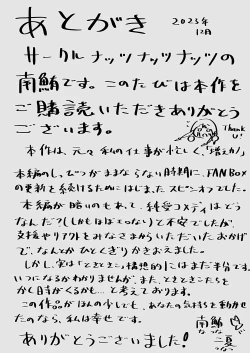 あとがき
2023年
12月
サークルナッツナッツナッツの
南鮪です。このたびは本作を
ご購読いただきありがとう
ございます。
Thank
U!
本作は、元々私の仕事が忙しく、
本編のしっぴつがままならない時期に、FANBox
の更新を続けるためにはじまったスピンオフでした。
本編が暗いのもあって、純愛コメディはどう
なんだ?(しかもほぼエロない)と不安でしたが、
支援やリアクトをみなさまからいただいたおかげ
で、なんとかひとくぎりかきおえました。
しかし、実は「ときどきこ」構想的にはまだ半分です。
いつになるかわかりませんが、また、ときどきこたちを
かく時がくるかも…と考えております。
この作品がほんの少しでも、あなたの気持ちを動かせ
たのなら、私は幸せです。
ありがとうございました!
南鮪